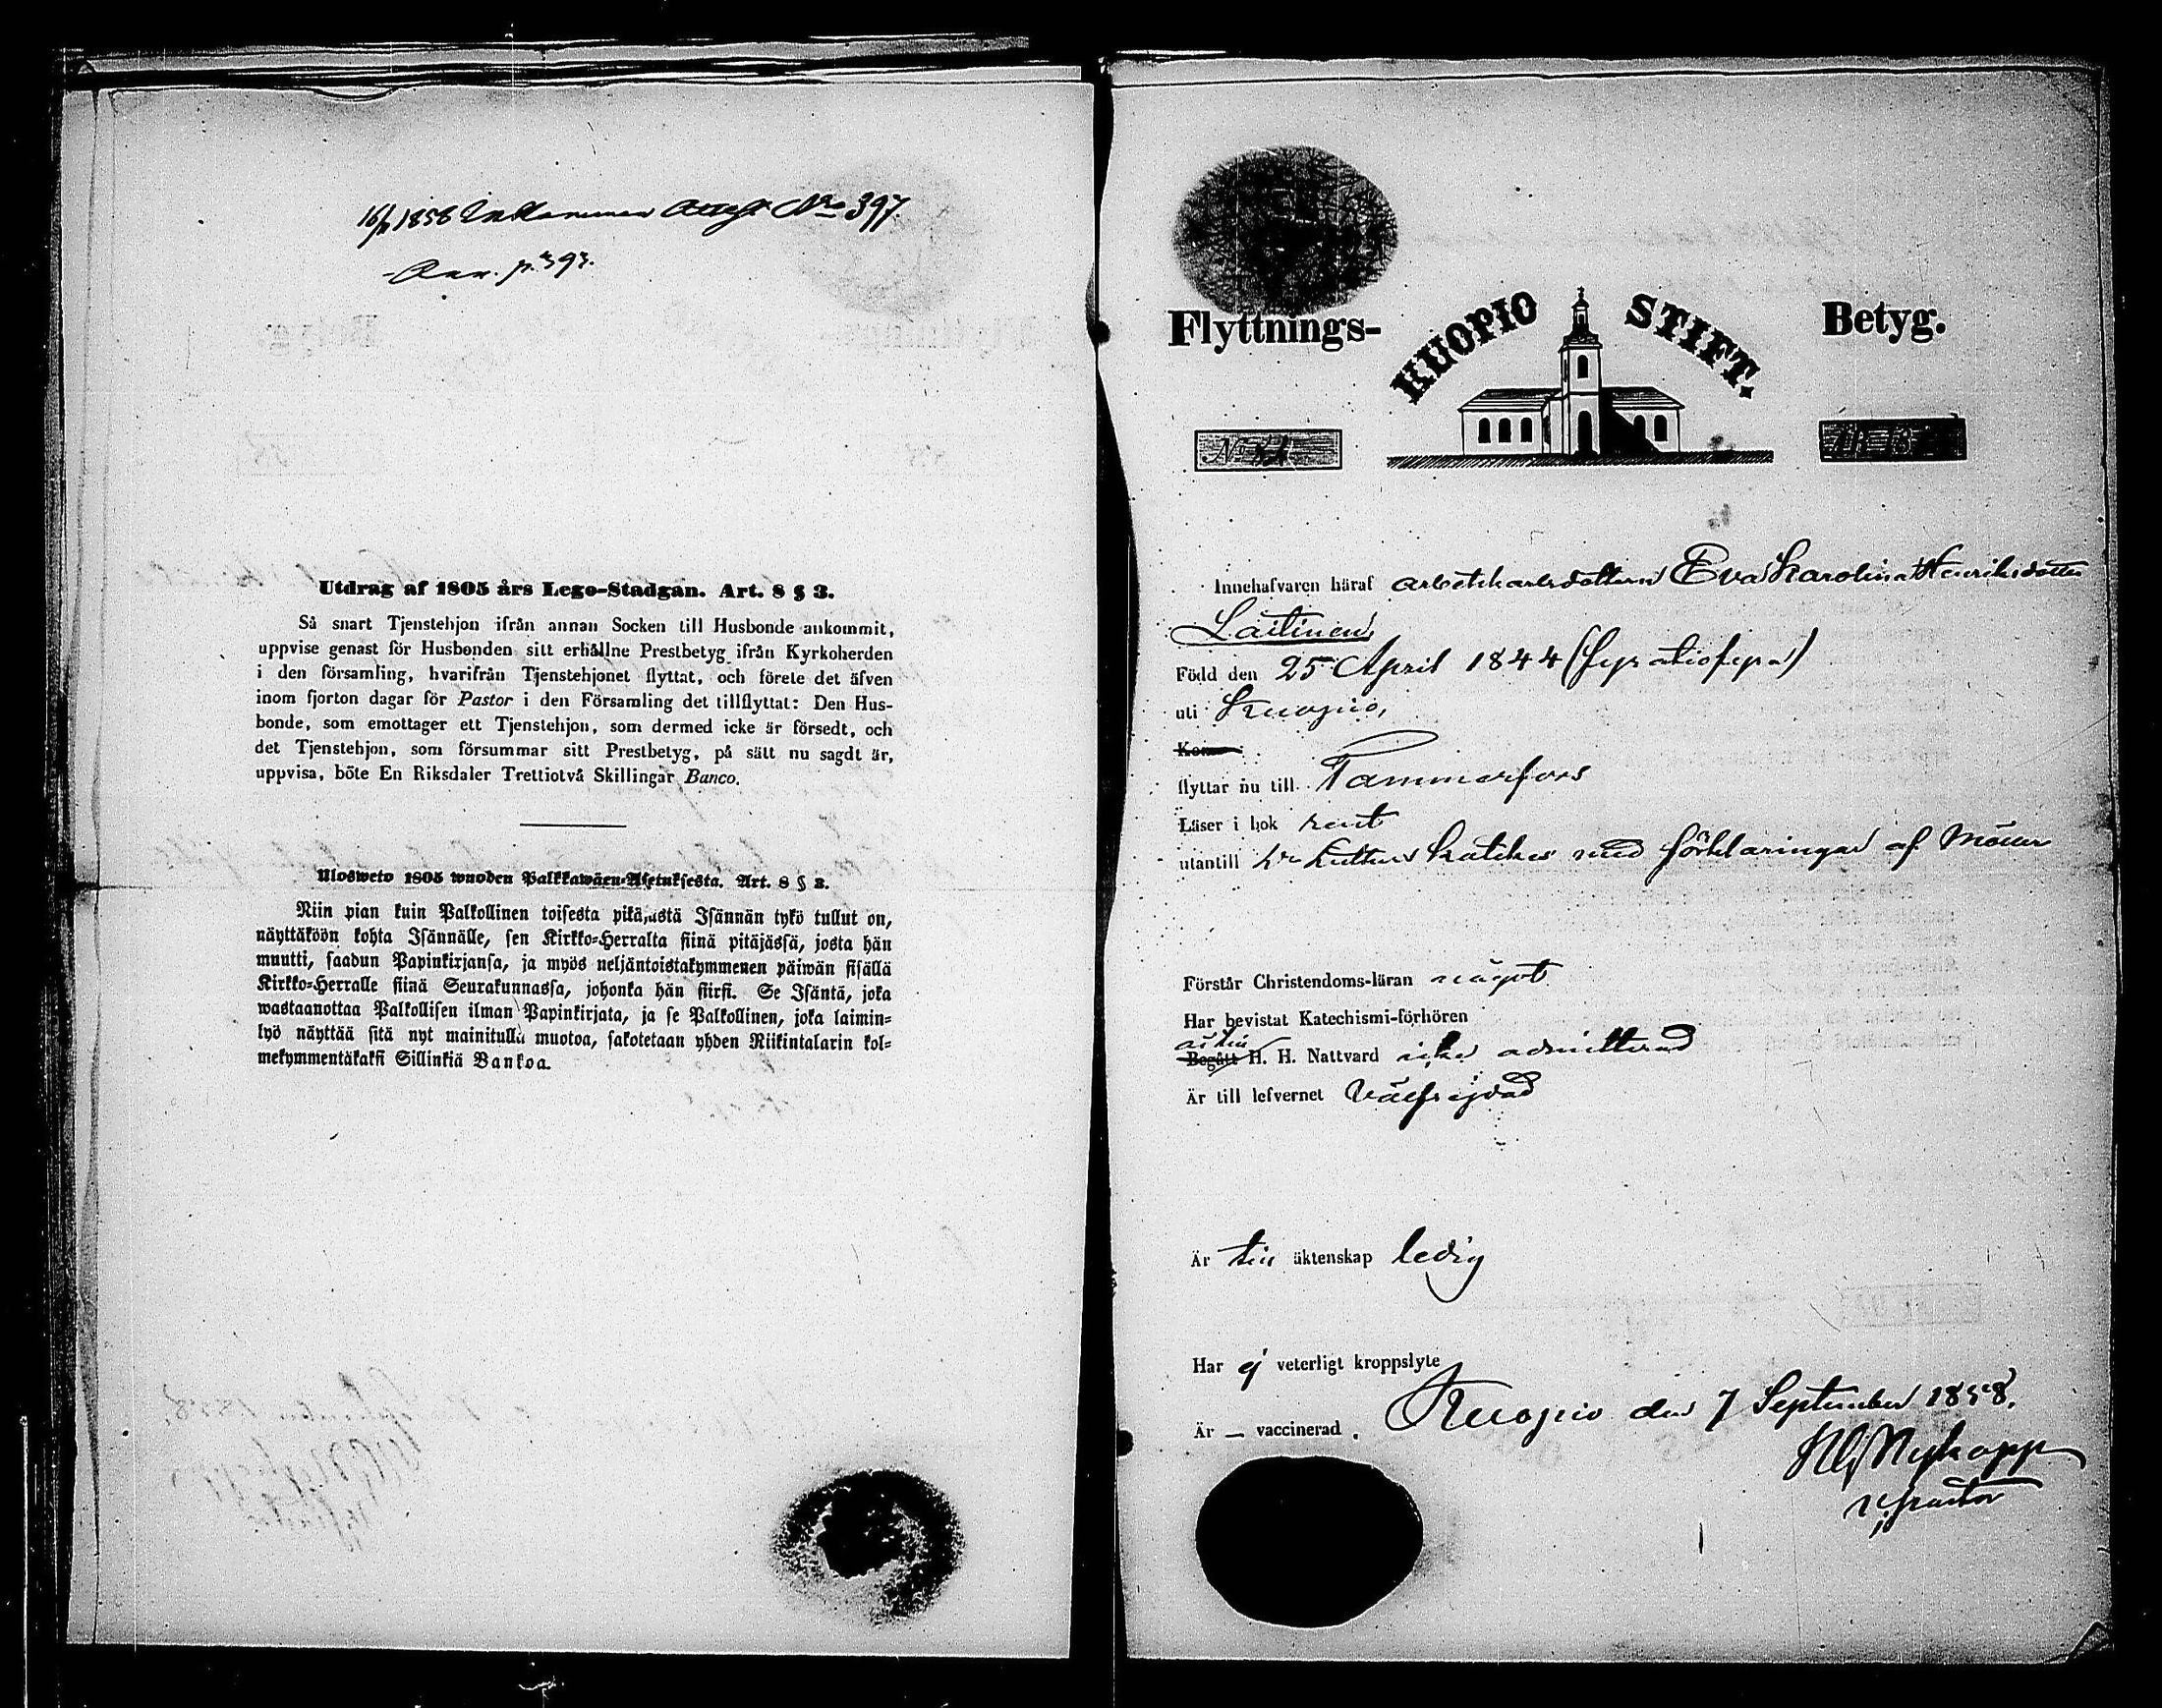 1858 Inkommen Attest No 397.
p. 393.
Utdrag af 1805 års Lego-Stadgan. Art. 8 § 3.
Så snart Tjenstehjon ifrån annan Socken till Husbonde ankommit,
uppvise genast för Husbonden sitt erhållne Prestbetyg ifrån Kyrkoherden
i den församling, hvarifrån Tjenstehjonet flyttat, och förete det äfven
inom fjorton dagar för Pastor i den Församling det tillflyttat: Den Hus-
bonde, som emottager ett Tjenstehjon, som dermed icke är försedt, och
det Tjenstehjon, som försummar sitt Prestbetyg, på sätt nu sagdt är,
uppvisa, böte En Riksdaler Trettiotvå Skillingar Banco.
Ulosweto 1805 wuoden Palkkawäen-Asetuksesta. Art. 8 § 3.
Niin pian kuin Palkollinen toisesta pitäjästä Isännän tykö tullut on,
näyttäköön kohta Isännälle, sen Kirkko-Herralta siinä pitäjässä, josta hän
muutti, saadun Papinkirjansa, ja myös neljäntoistakymmenen päiwän sisällä
Kirkko-Herralle siinä Seurakunnassa, johonka hän siirsi. Se Isäntä, joka
wastaanottaa Palkollisen ilman Papinkirjata, ja se Palkollinen, joka laimin-
lyö näyttää sitä nyt mainitulla muotoa, sakotetaan yhden Riikintalarin kol-
mekymmentäkaksi Sillinkiä Bankoa.
Flyttnings- KUOPIO STIFT. Betyg.
No
Innehafvaren häraf arbetskarlsdottern Eva Karolina Henriksdotter
Laitinen,
Född den 25 April 1844 (fyratiofyra)
uti Kuopio,
Kom
flyttar nu till Tammerfors
Läser i bok rent
utantill Dr Luthers Katekes med förklaringar af Möller
Förstår Christendoms-läran något
Har bevistat Katechismi-förhören
är till
Begått H. H. Nattvard icke admitterad
Är till lefvernet välfrejdad
Är till äktenskap ledig
Har ej veterligt kroppslyte
Är — vaccinerad. Kuopio den 7 September 1858.
Nykopp
v. pastor